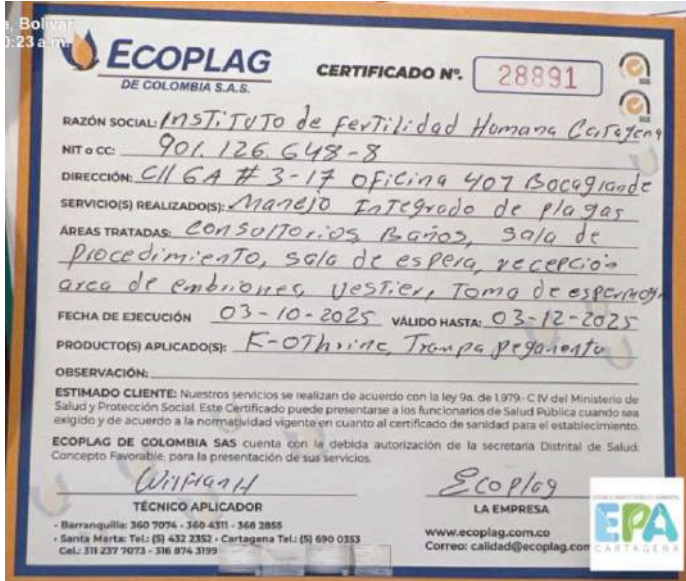 , Bolívar
0:23 a.m.
ECOPLAG
DE COLOMBIA S.A.S.
CERTIFICADO Nº. 28891
RAZÓN SOCIAL: InsTiTuTo de ferTilidad Humana CarTagena
NIT o CC: 901.126.648-8
DIRECCIÓN: Cll 6A # 3-17 oficina 407 Bocagrande
SERVICIO(S) REALIZADO(S): Manejo InTegrado de plagas
ÁREAS TRATADAS: ConsulTorios, Baños, sala de
procedimienTo, sala de espera, recepción
area de embriones, vesTier, Toma de espermog
FECHA DE EJECUCIÓN 03-10-2025 VÁLIDO HASTA: 03-12-2025
PRODUCTO(S) APLICADO(S): K-OThrine, Trampa pegamento
OBSERVACIÓN:
ESTIMADO CLIENTE: Nuestros servicios se realizan de acuerdo con la ley 9a. de 1.979.- C IV del Ministerio de
Salud y Protección Social. Este Certificado puede presentarse a los funcionarios de Salud Pública cuando sea
exigido y de acuerdo a la normatividad vigente en cuanto al certificado de sanidad para el establecimiento.
ECOPLAG DE COLOMBIA SAS cuenta con la debida autorización de la secretaria Distrital de Salud:
Concepto Favorable, para la presentación de sus servicios.
Ecoplag
TÉCNICO APLICADOR
LA EMPRESA
- Barranquilla: 360 7074 - 360 4311 - 368 2855
- Santa Marta: Tel.: (5) 432 2352 - Cartagena Tel.: (5) 690 0353
Cel.: 311 237 7073 - 316 874 3199
www.ecoplag.com.co
Correo: calidad@ecoplag.com
EPA
CARTAGENA